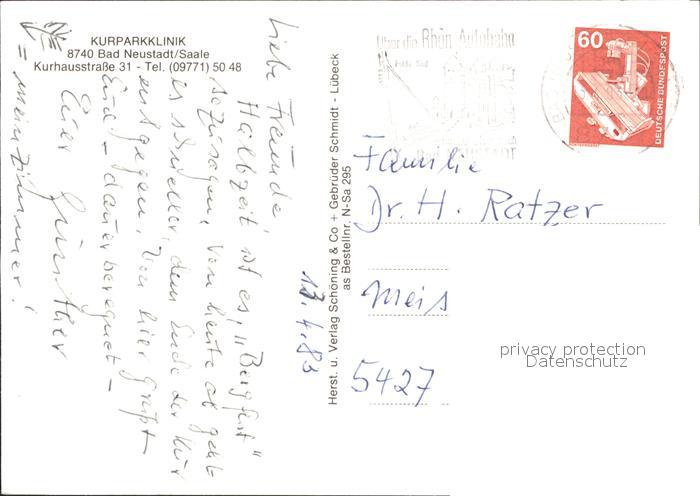 KURPARKKLINIK
8740 Bad Neustadt/Saale
Kurhausstraße 31 - Tel. (09771) 50 48
Liebe Freunde,
Halbzeit ist es, "Bergfest"
sozusagen, von heute ab geht
es schneller, dem Ende der Kur
entgegen, von hier grüßt
Euch - dauerberegnet -
Euer Günther
= mein Zimmer!
13.4.83
Herst. u. Verlag Schöning & Co + Gebrüder Schmidt - Lübeck
as Bestellnr. N-Sa 295
Über die Rhön-Autobahn
60
DEUTSCHE BUNDESPOST
Familie
Dr. H. Ratzer
5427
privacy protection
Datenschutz